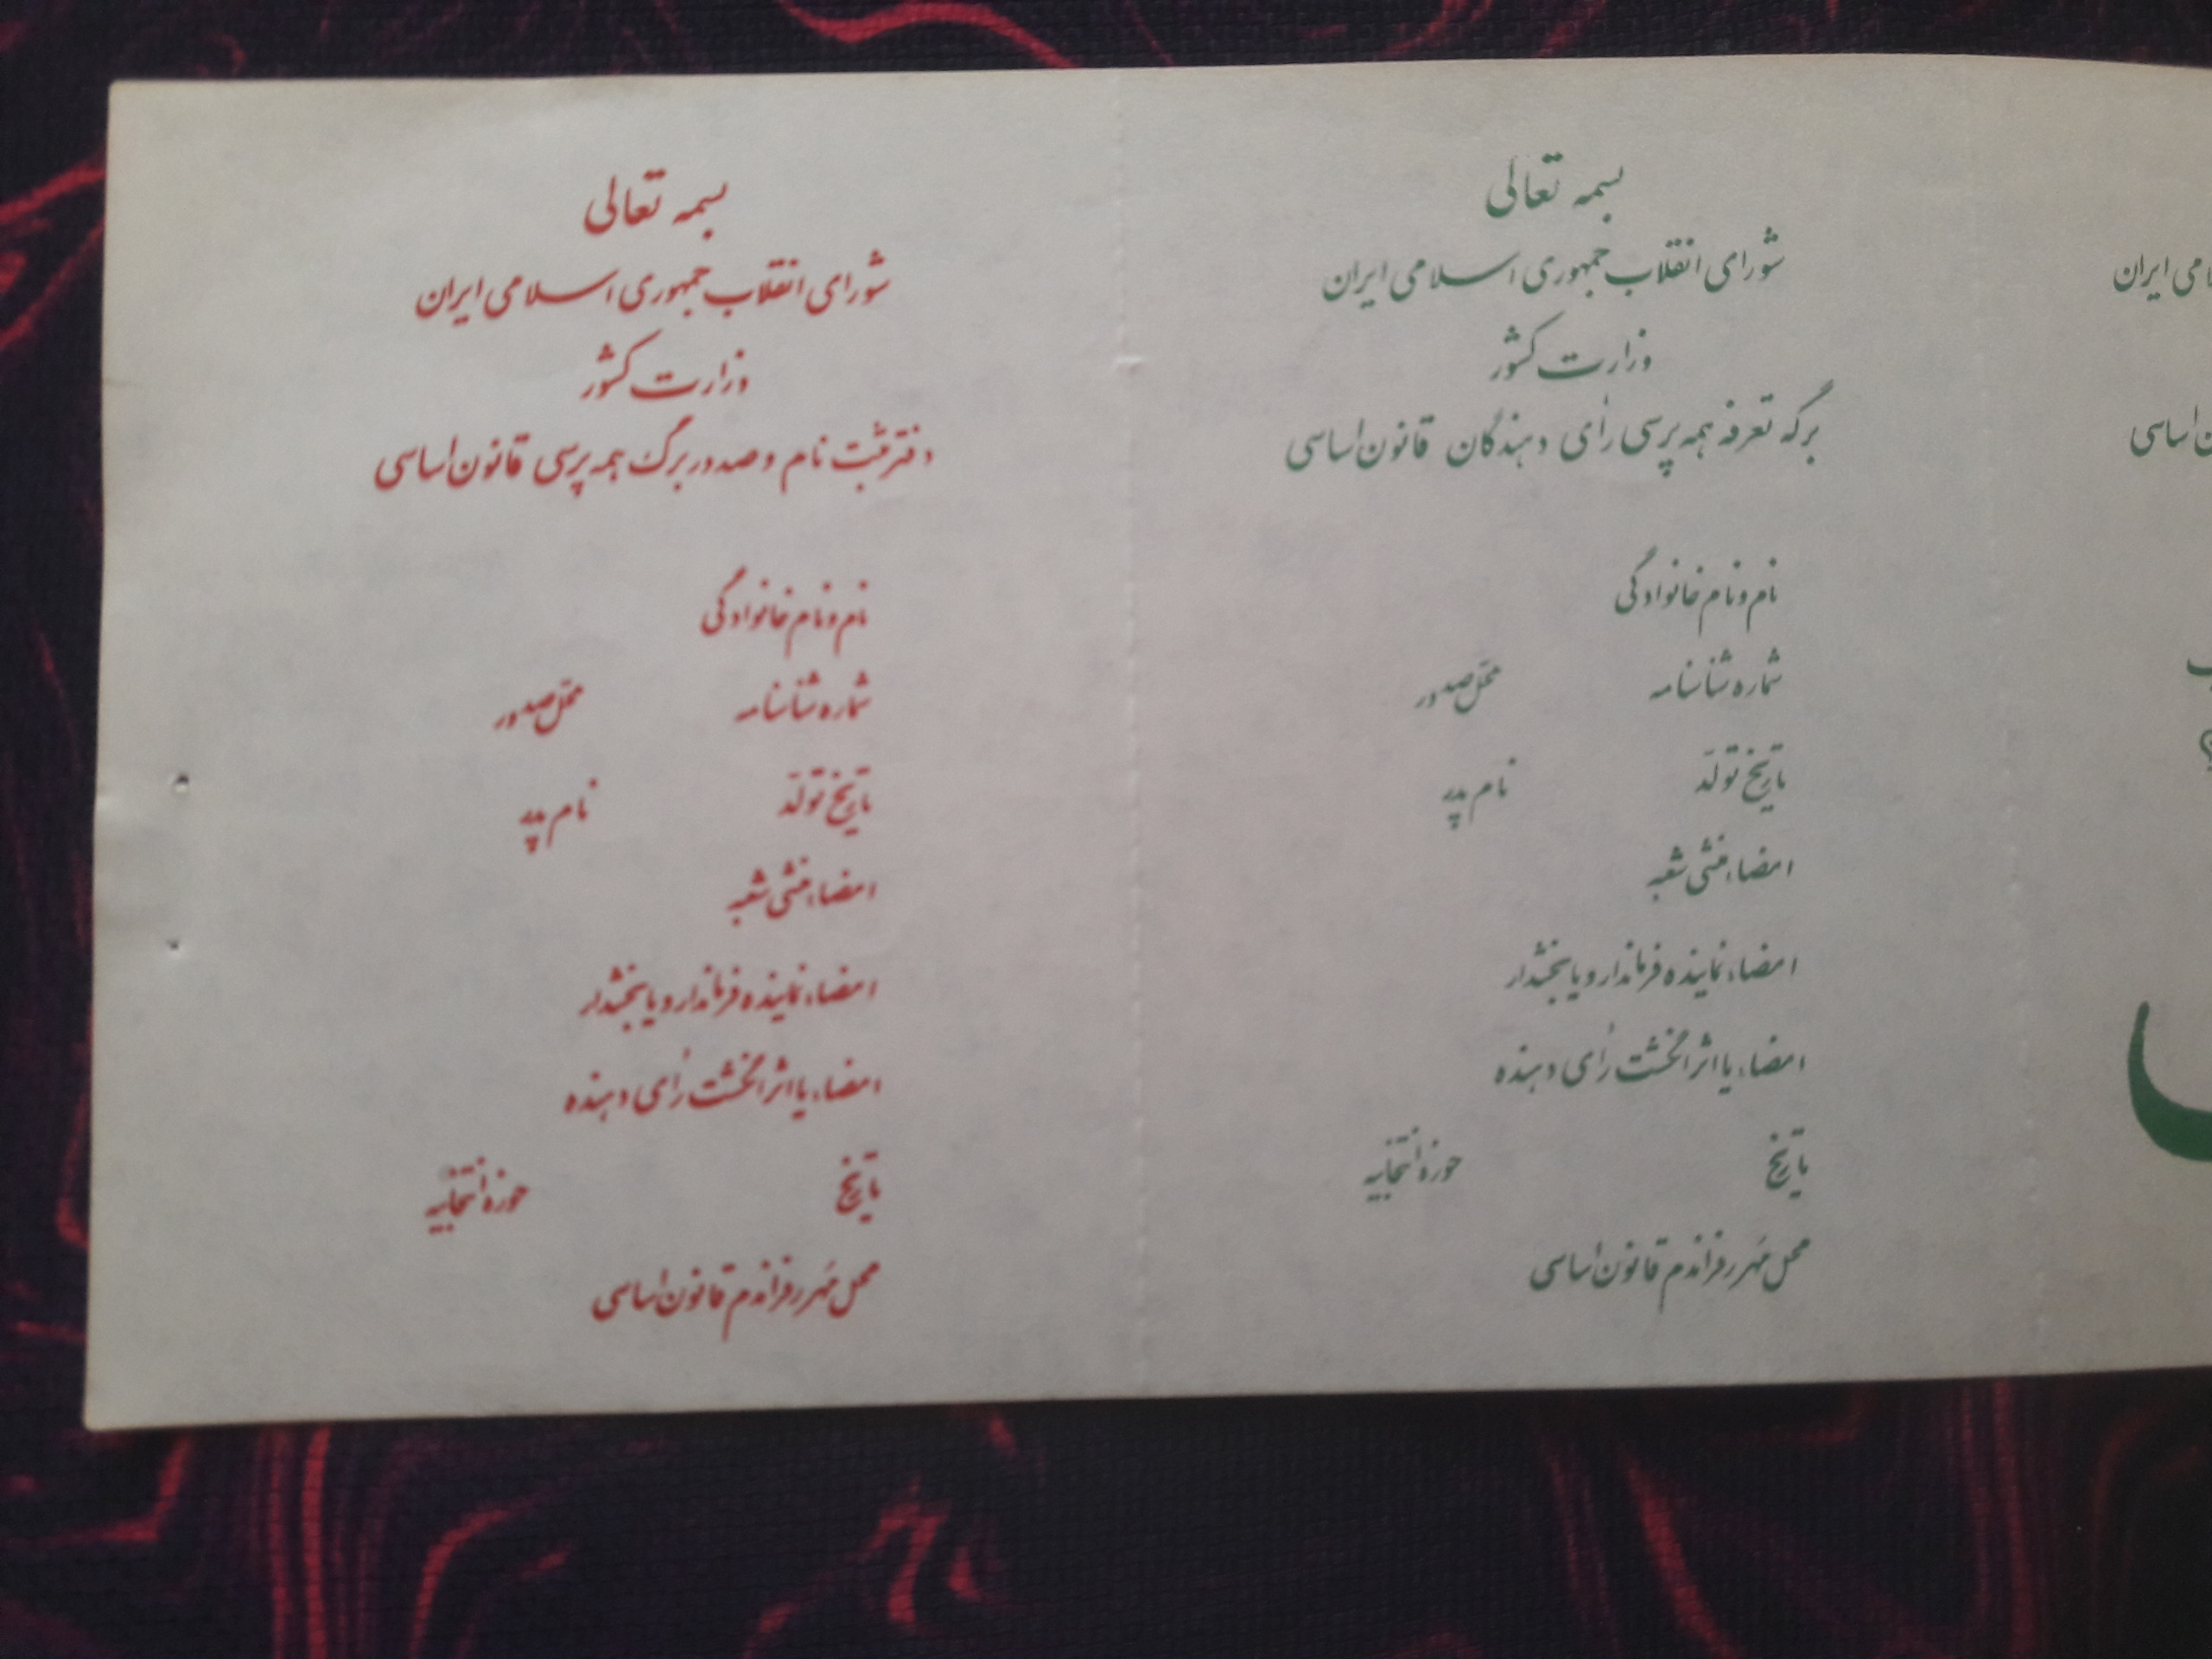 امی ایران
ن اساسی
بسمه تعالی
شورای انقلاب جمهوری اسلامی ایران
وزارت کشور
برگه تعرفه همه پرسی رأی دهندگان قانون اساسی
نام و نام خانوادگی
شماره شناسنامه محل صدور
تاریخ تولّد نام پدر
امضاء منشی شعبه
امضاء نماینده فرماندار و یا بخشدار
امضاء یا اثر انگشت رأی دهنده
تاریخ حوزه انتخابیه
محل مُهر رفراندم قانون اساسی
بسمه تعالی
شورای انقلاب جمهوری اسلامی ایران
وزارت کشور
دفتر ثبت نام و صدور برگ همه پرسی قانون اساسی
نام و نام خانوادگی
شماره شناسنامه محل صدور
تاریخ تولّد نام پدر
امضاء منشی شعبه
امضاء نماینده فرماندار و یا بخشدار
امضاء یا اثر انگشت رأی دهنده
تاریخ حوزه انتخابیه
محل مُهر رفراندم قانون اساسی